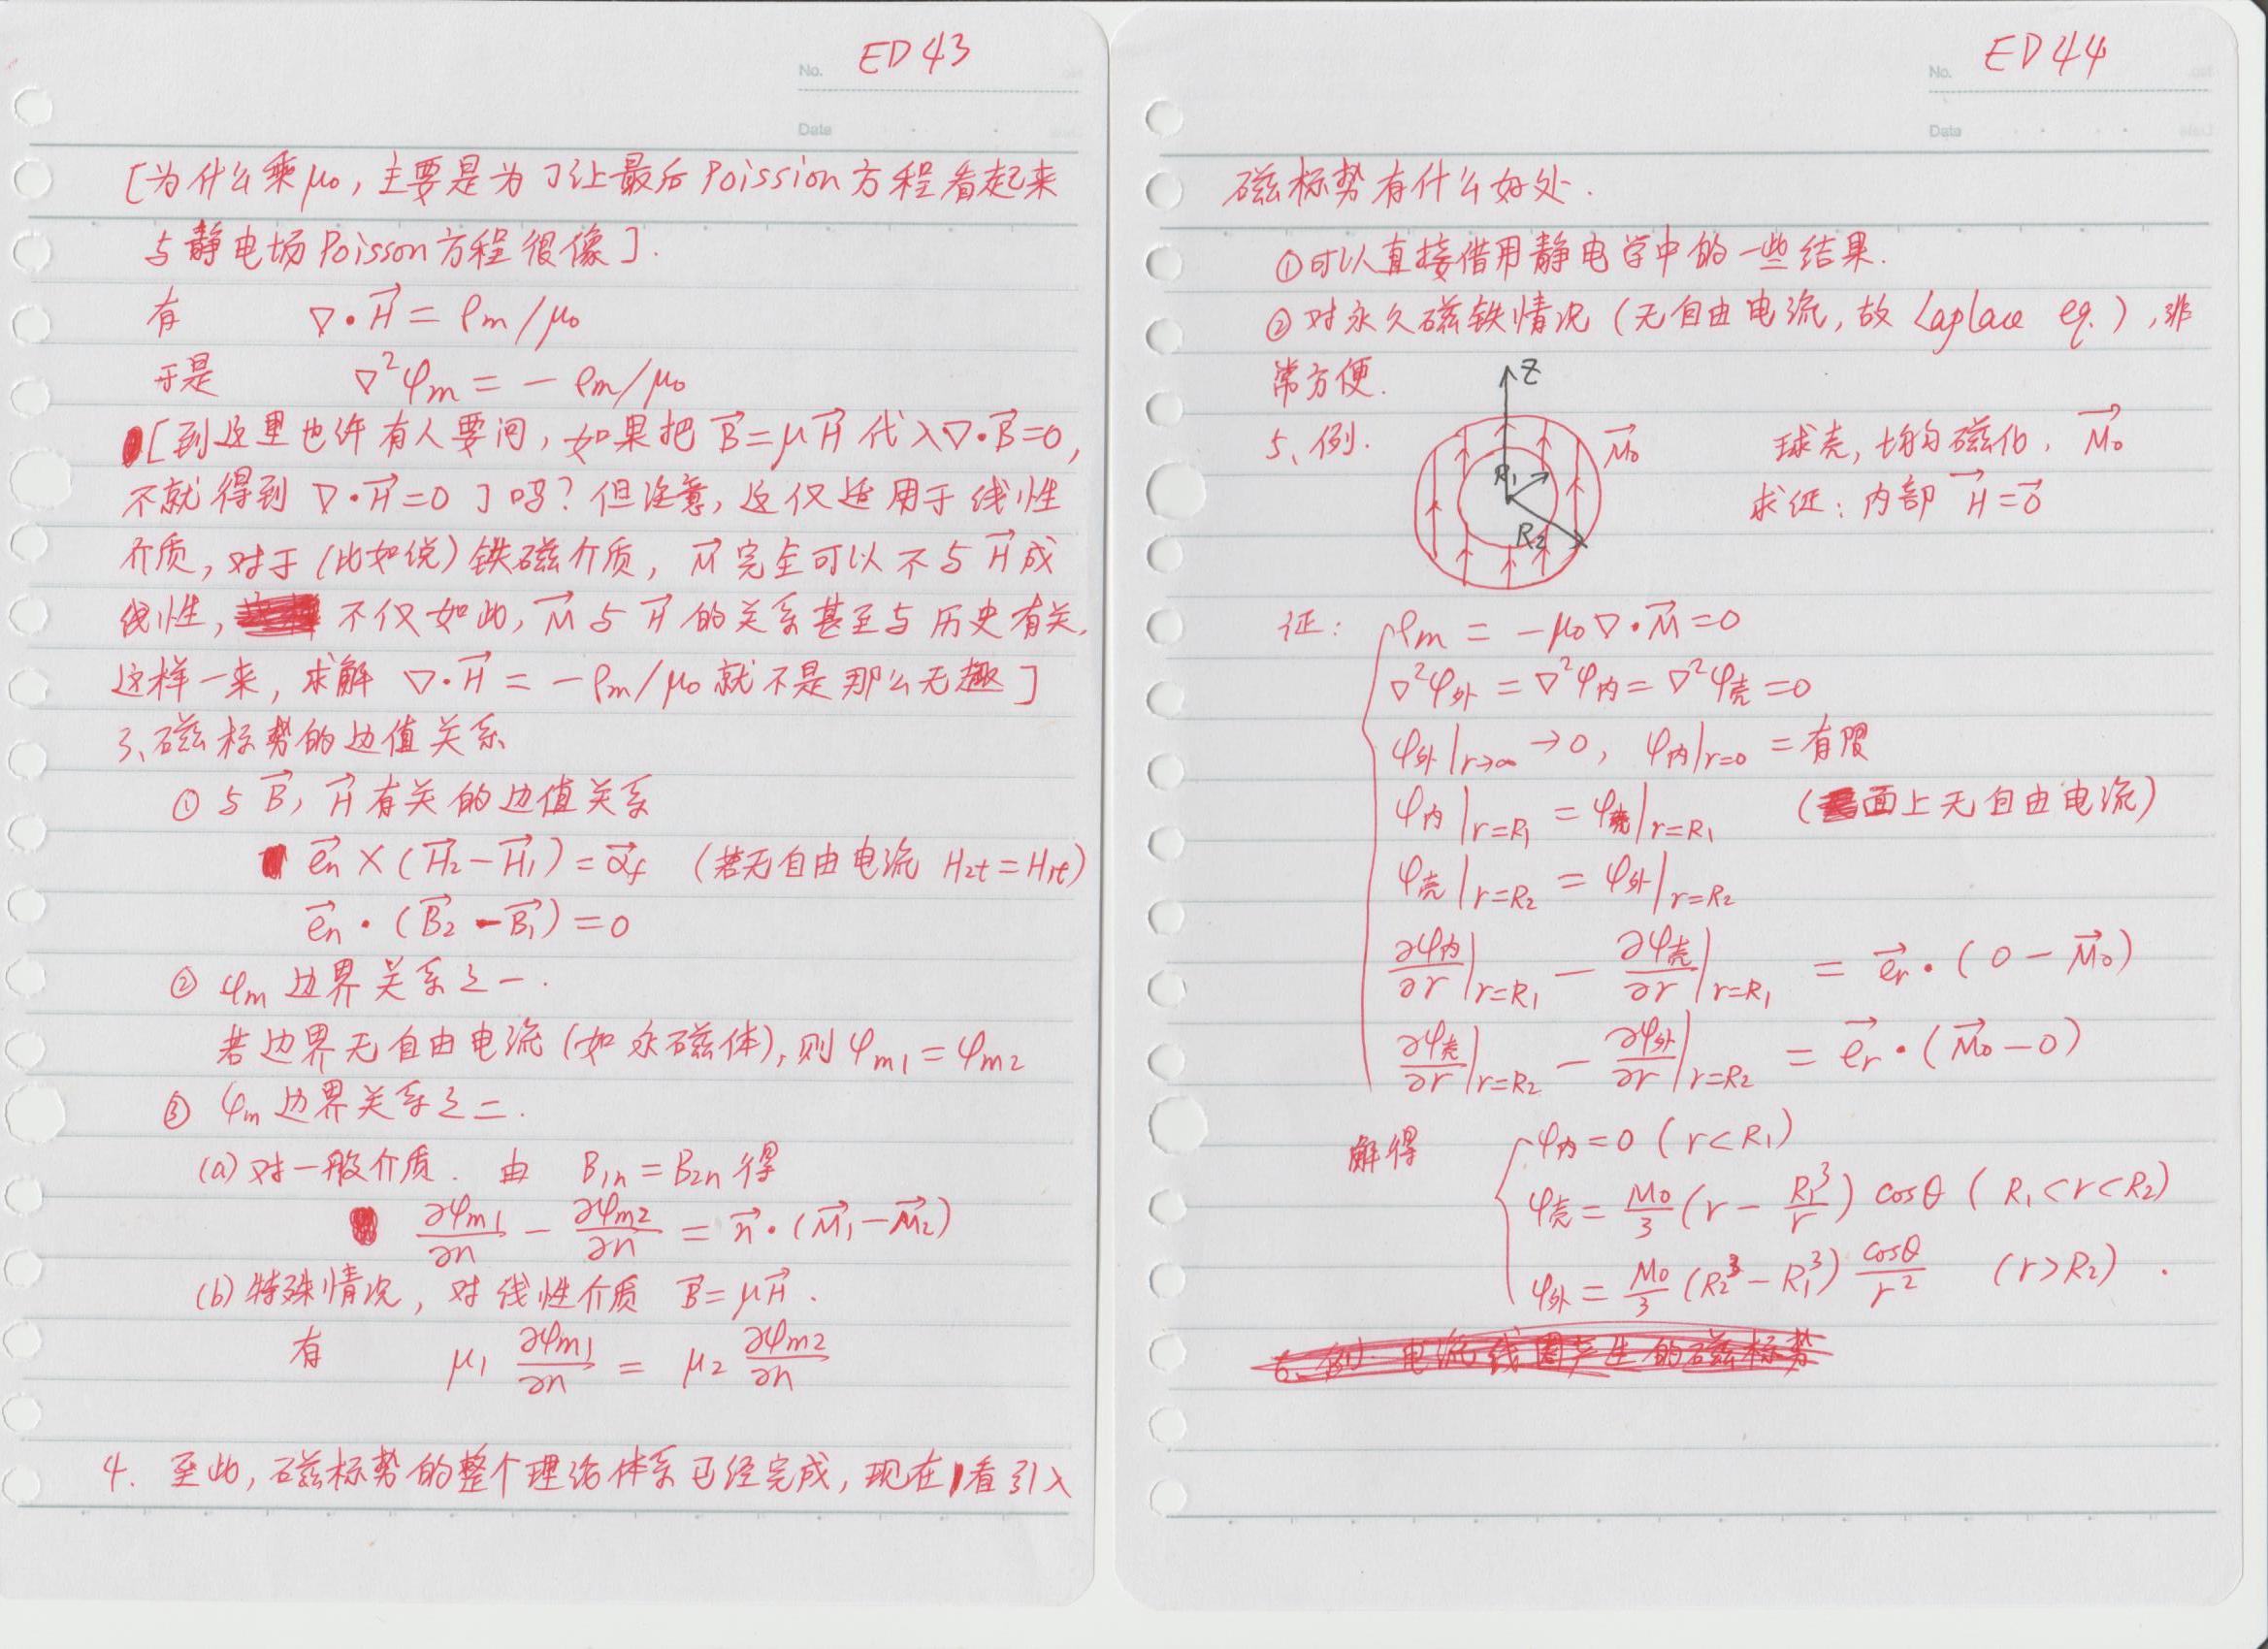 No. ED 43
Date
[为什么乘μ₀, 主要是为了让最后Poission方程看起来
与静电场Poisson方程很像].
有 ∇·H⃗ = ρm/μ₀
于是 ∇²φm = -ρm/μ₀
[到这里也许有人要问, 如果把 B⃗=μH⃗ 代入∇·B⃗=0,
不就得到 ∇·H⃗=0 了吗? 但注意, 这仅适用于线性
介质, 对于(比如说)铁磁介质, M⃗完全可以不与H⃗成
线性, 不仅如此, M⃗与H⃗的关系甚至与历史有关,
这样一来, 求解 ∇·H⃗ = -ρm/μ₀ 就不是那么无趣]
3、磁标势的边值关系
① 与B⃗, H⃗有关的边值关系
e⃗n × (H⃗₂-H⃗₁) = α⃗f (若无自由电流 H2t=H1t)
e⃗n · (B⃗₂-B⃗₁) = 0
② φm 边界关系之一.
若边界无自由电流(如永磁体), 则 φm1 = φm2
③ φm 边界关系之二.
(a) 对一般介质. 由 B1n=B2n 得
∂φm1/∂n - ∂φm2/∂n = n⃗·(M⃗₁-M⃗₂)
(b) 特殊情况, 对线性介质 B⃗=μH⃗.
有 μ₁ ∂φm1/∂n = μ₂ ∂φm2/∂n
4. 至此, 磁标势的整个理论体系已经完成, 现在看引入
No. ED 44
Date
磁标势有什么好处.
①可以直接借用静电学中的一些结果.
②对永久磁铁情况(无自由电流, 故Laplace eq.), 非
常方便.
z
5、例. M⃗₀ 球壳, 均匀磁化, M⃗₀
R₁
求证: 内部 H⃗=0⃗
R₂
证: ρm = -μ₀∇·M⃗=0
∇²φ外 = ∇²φ内 = ∇²φ壳 = 0
φ外|r→∞ → 0, φ内|r=0 = 有限
φ内|r=R₁ = φ壳|r=R₁ (面上无自由电流)
φ壳|r=R₂ = φ外|r=R₂
∂φ内/∂r|r=R₁ - ∂φ壳/∂r|r=R₁ = e⃗r·(0-M⃗₀)
∂φ壳/∂r|r=R₂ - ∂φ外/∂r|r=R₂ = e⃗r·(M⃗₀-0)
解得 φ内=0 (r<R₁)
φ壳 = M₀/3 (r - R₁³/r) cosθ (R₁<r<R₂)
φ外 = M₀/3 (R₂³-R₁³) cosθ/r² (r>R₂).
6、例. 电流线圈产生的磁标势